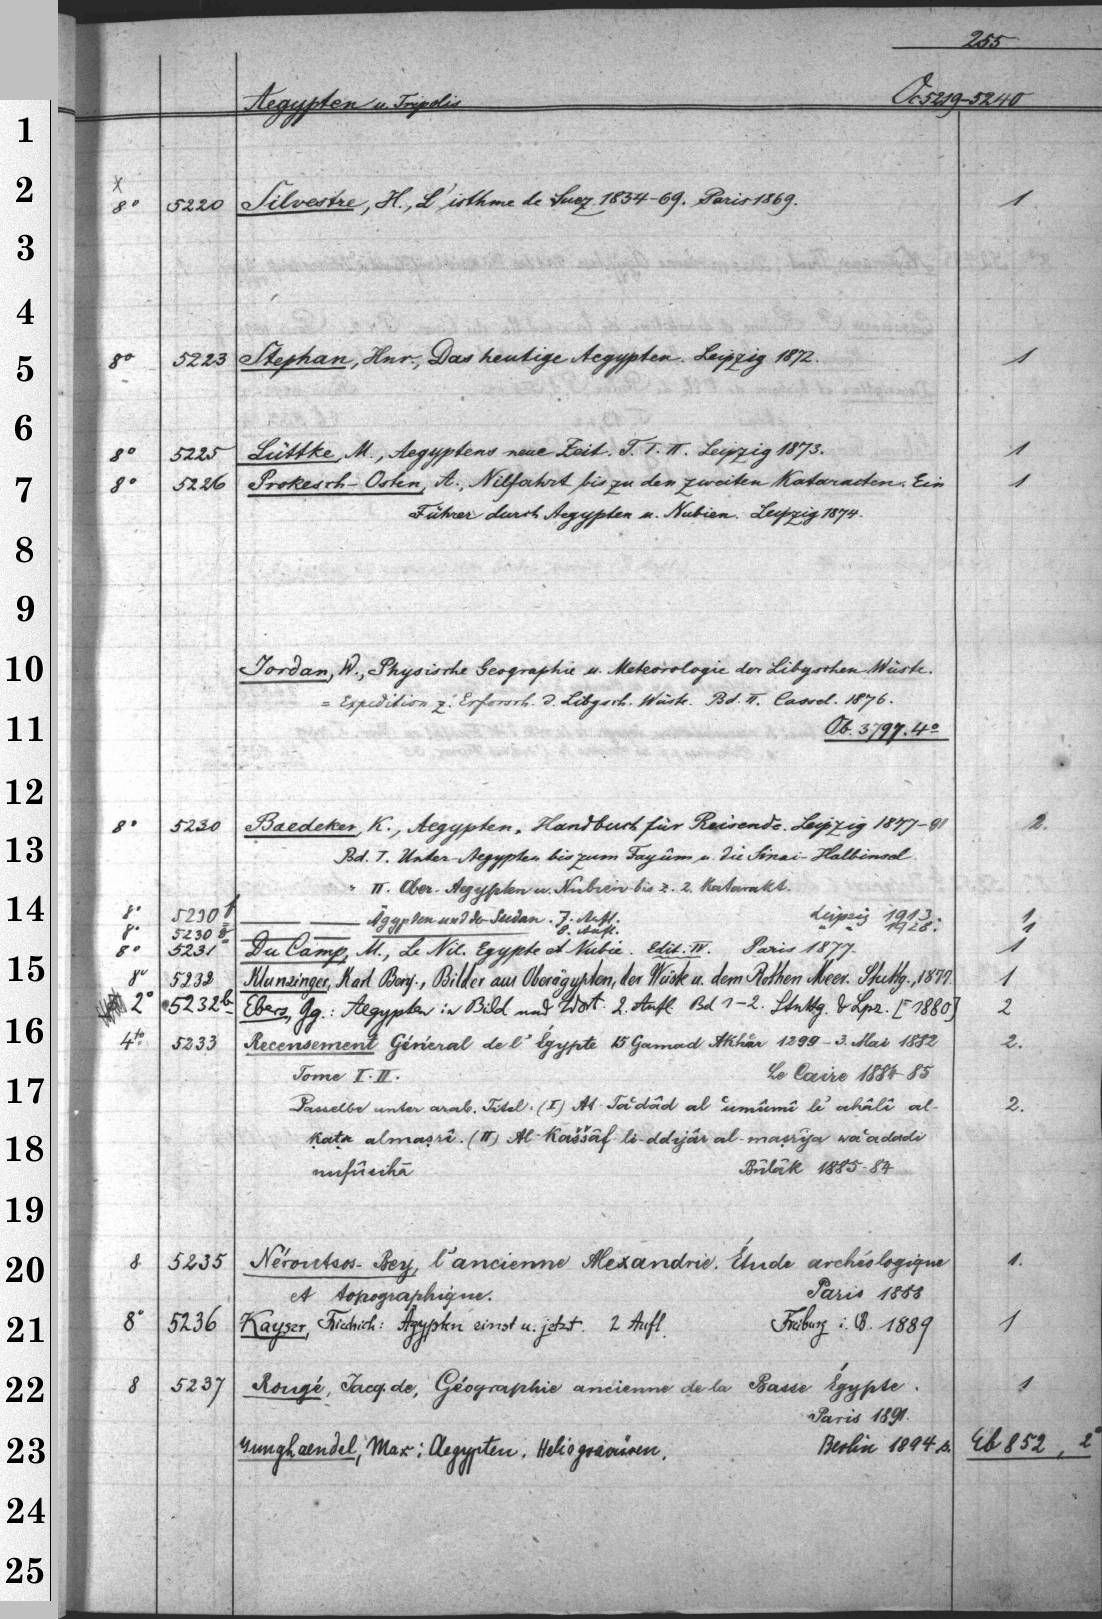 255
Aegypten u. Tripolis Oc 5219-5240
1
x
2
8° 5220 Silvestre, H., L'isthme de Suez 1854-69. Paris 1869. 1
3
4
8° 5223 Stephan, Hnr., Das heutige Aegypten. Leipzig 1872. 1
5
6
8° 5225 Lüttke, M., Aegyptens neue Zeit. T. I. II. Leipzig 1873. 1
7 8° 5226 Prokesch-Osten, A., Nilfahrt bis zu den zweiten Katarakten. Ein 1
Führer durch Aegypten u. Nubien. Leipzig 1874.
8
9
10 Jordan, W., Physische Geographie u. Meteorologie der Libyschen Wüste.
= Expedition z. Erforsch. d. Libysch. Wüste. Bd. II. Cassel. 1876.
11 Ob. 3797. 4°
12
8° 5230 Baedeker, K., Aegypten. Handbuch für Reisende. Leipzig 1877-91 2.
13 Bd. I. Unter-Aegypten bis zum Fayûm u. die Sinai-Halbinsel
" II. Ober-Aegypten u. Nubien bis z. 2. Katarakt.
14 8° 5230 f — — Ägypten und der Sudan. 7. Aufl. Leipzig 1913. 1
8° 5230 g 8. Aufl. " " 1928. 1
8° 5231 Du Camp, M., Le Nil. Egypte et Nubie. Edit. IV. Paris 1877. 1
15 8° 5232 Klunzinger, Karl Benj., Bilder aus Oberägypten, der Wüste u. dem Rothen Meer. Stuttg., 1877. 1
2° 5232b Ebers, Gg.: Aegypten in Bild und Wort. 2. Aufl. Bd 1-2. Stuttg. & Lpz. [1880] 2
16 4to 5233 Recensement Général de l'Égypte 15 Gamad Akhâr 1299 - 3. Mai 1882 2.
17 Tome I. II. Le Caire 1884-85
Dasselbe unter arab. Titel. (I) At-Ta'dâd al 'umûmî li' ahâlî al- 2.
18 kaṭr almaṣrî. (II) Al-Kaššâf li-ddijâr al-maṣrîja wa'adadi
nufûsihâ Bûlâk 1885-84
19
20 8 5235 Néroutsos-Bey, l'ancienne Alexandrie. Étude archéologique 1.
et topographique. Paris 1888
21 8° 5236 Kayser, Friedrich: Ägypten einst u. jetzt. 2 Aufl. Freiburg i. B. 1889 1
22 8 5237 Rougé, Jacq. de, Géographie ancienne de la Basse Égypte. 1
Paris 1891.
23 Junghaendel, Max: Aegypten. Heliogravüren. Berlin 1894 Eb 852, 2°
24
25